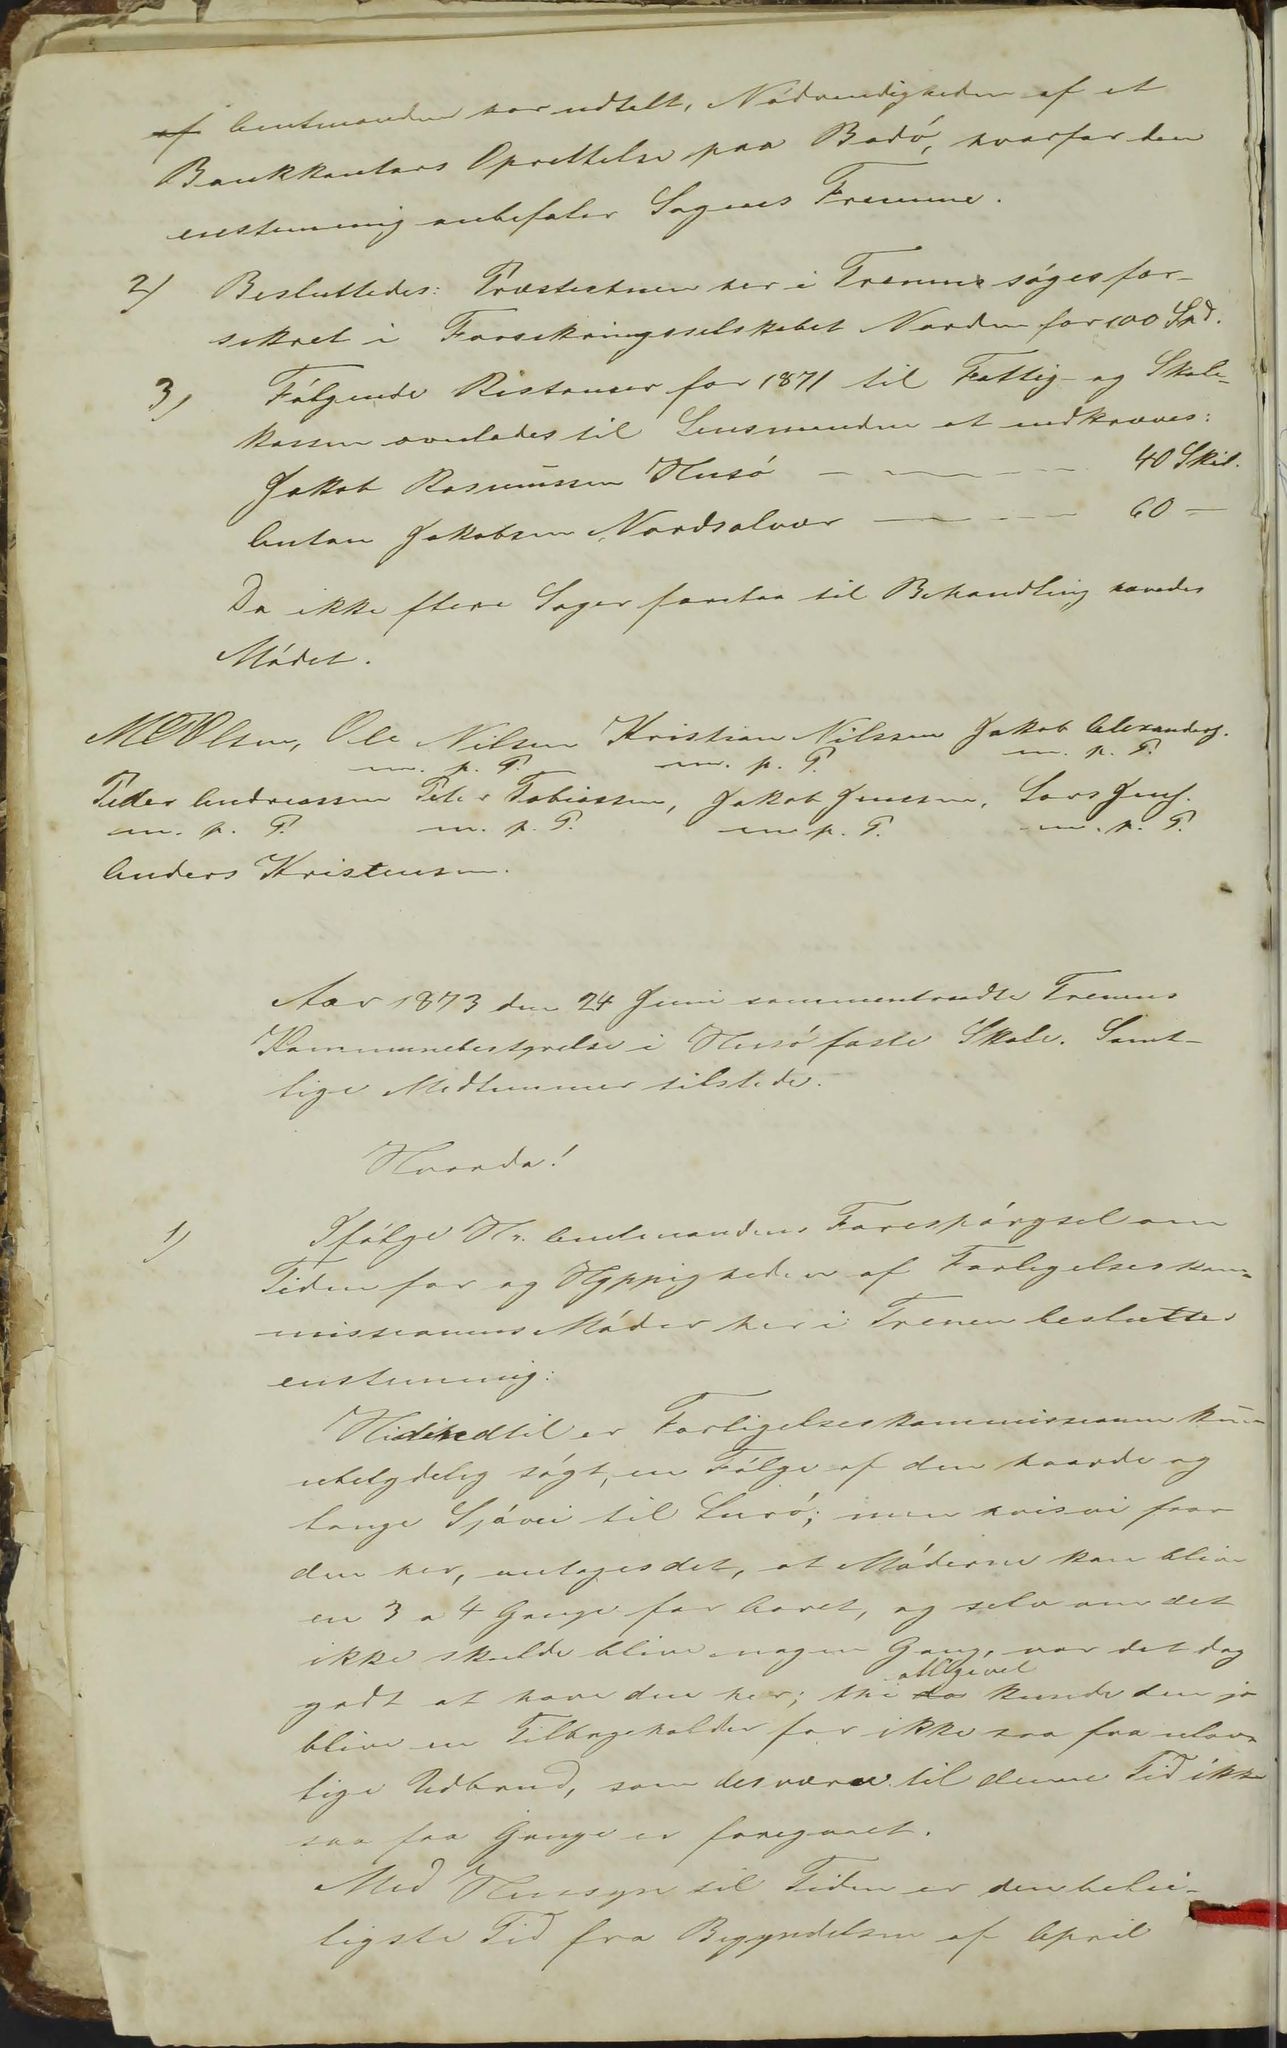 af Amtmanden har udtalt, Nödvendigheden af et
Bankkontors Oprettelse paa Bodö, hvorfor den
enstemmig anbefaler Sagens Fremme.
2) Besluttedes: Præstestuen her i Trænen söges for-
sikret i Forsikringsselskabet Norden for 100 Spd.
3) Fölgende Restanser for 1871 til Fattig- og Skole-
kassen overlades til Lensmanden at indkræves:
Jakob Rasmussen Husö — — — 40 Skil.
Anton Jakobsen Nordsolvær — — — 60 —
Da ikke flere Sager forelaa til Behandling hævedes
Mödet.
Olsen, Ole Nilsen Kristian Nilssen Jakob Alexanders.
m. p. P. m. p. P. m. p. P.
Peder Andreassen Peter Tobiassen, Jakob Jensen, Lars Jens.
m. p. P. m. p. P. m. p. P. m. p. P.
Anders Kristensen.
Aar 1873 den 24 Juni sammentraadte Trænens
Kommunebestyrelse i Husö faste Skole. Samt-
lige Medlemmer tilstede.
Hvorda!
1) Ifölge Hr. Amtmandens Forespörgsel om
Tiden for og Hyppigheden af Forligelseskom-
missionens Möder her i Trænen besluttes
enstemmig:
Hidindtil er Forligelseskommissionen kun
ubetydelig sögt, en Fölge af den haarde og
lange Sjövei til Lurö; men hvis vi faar
den her, antages det, at Möderne kan blive
en 3 a 4 Gange for Aaret, og selv om det
ikke skulde blive nogen Gang, var det dog
godt at have den her; thi da alligevel kunde den jo
blive en Tilbageholder for ikke saa faa ulov-
lige Udbrud, som desværre til denne Tid ikke
saa faa Gange er foregaaet.
Med Hensyn til Tiden er den belei-
ligste Tid fra Begyndelsen af April